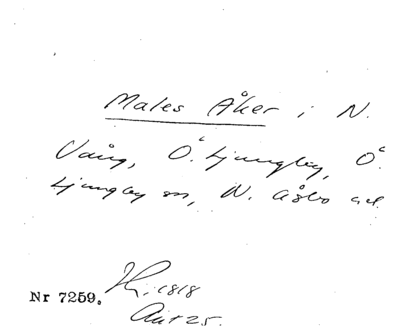 Males Åker i N.
Vång, Ö. Ljungby, Ö.
Ljungby sn, N. Åsbo hd.
1818
Nr 7259.
Akt 25.